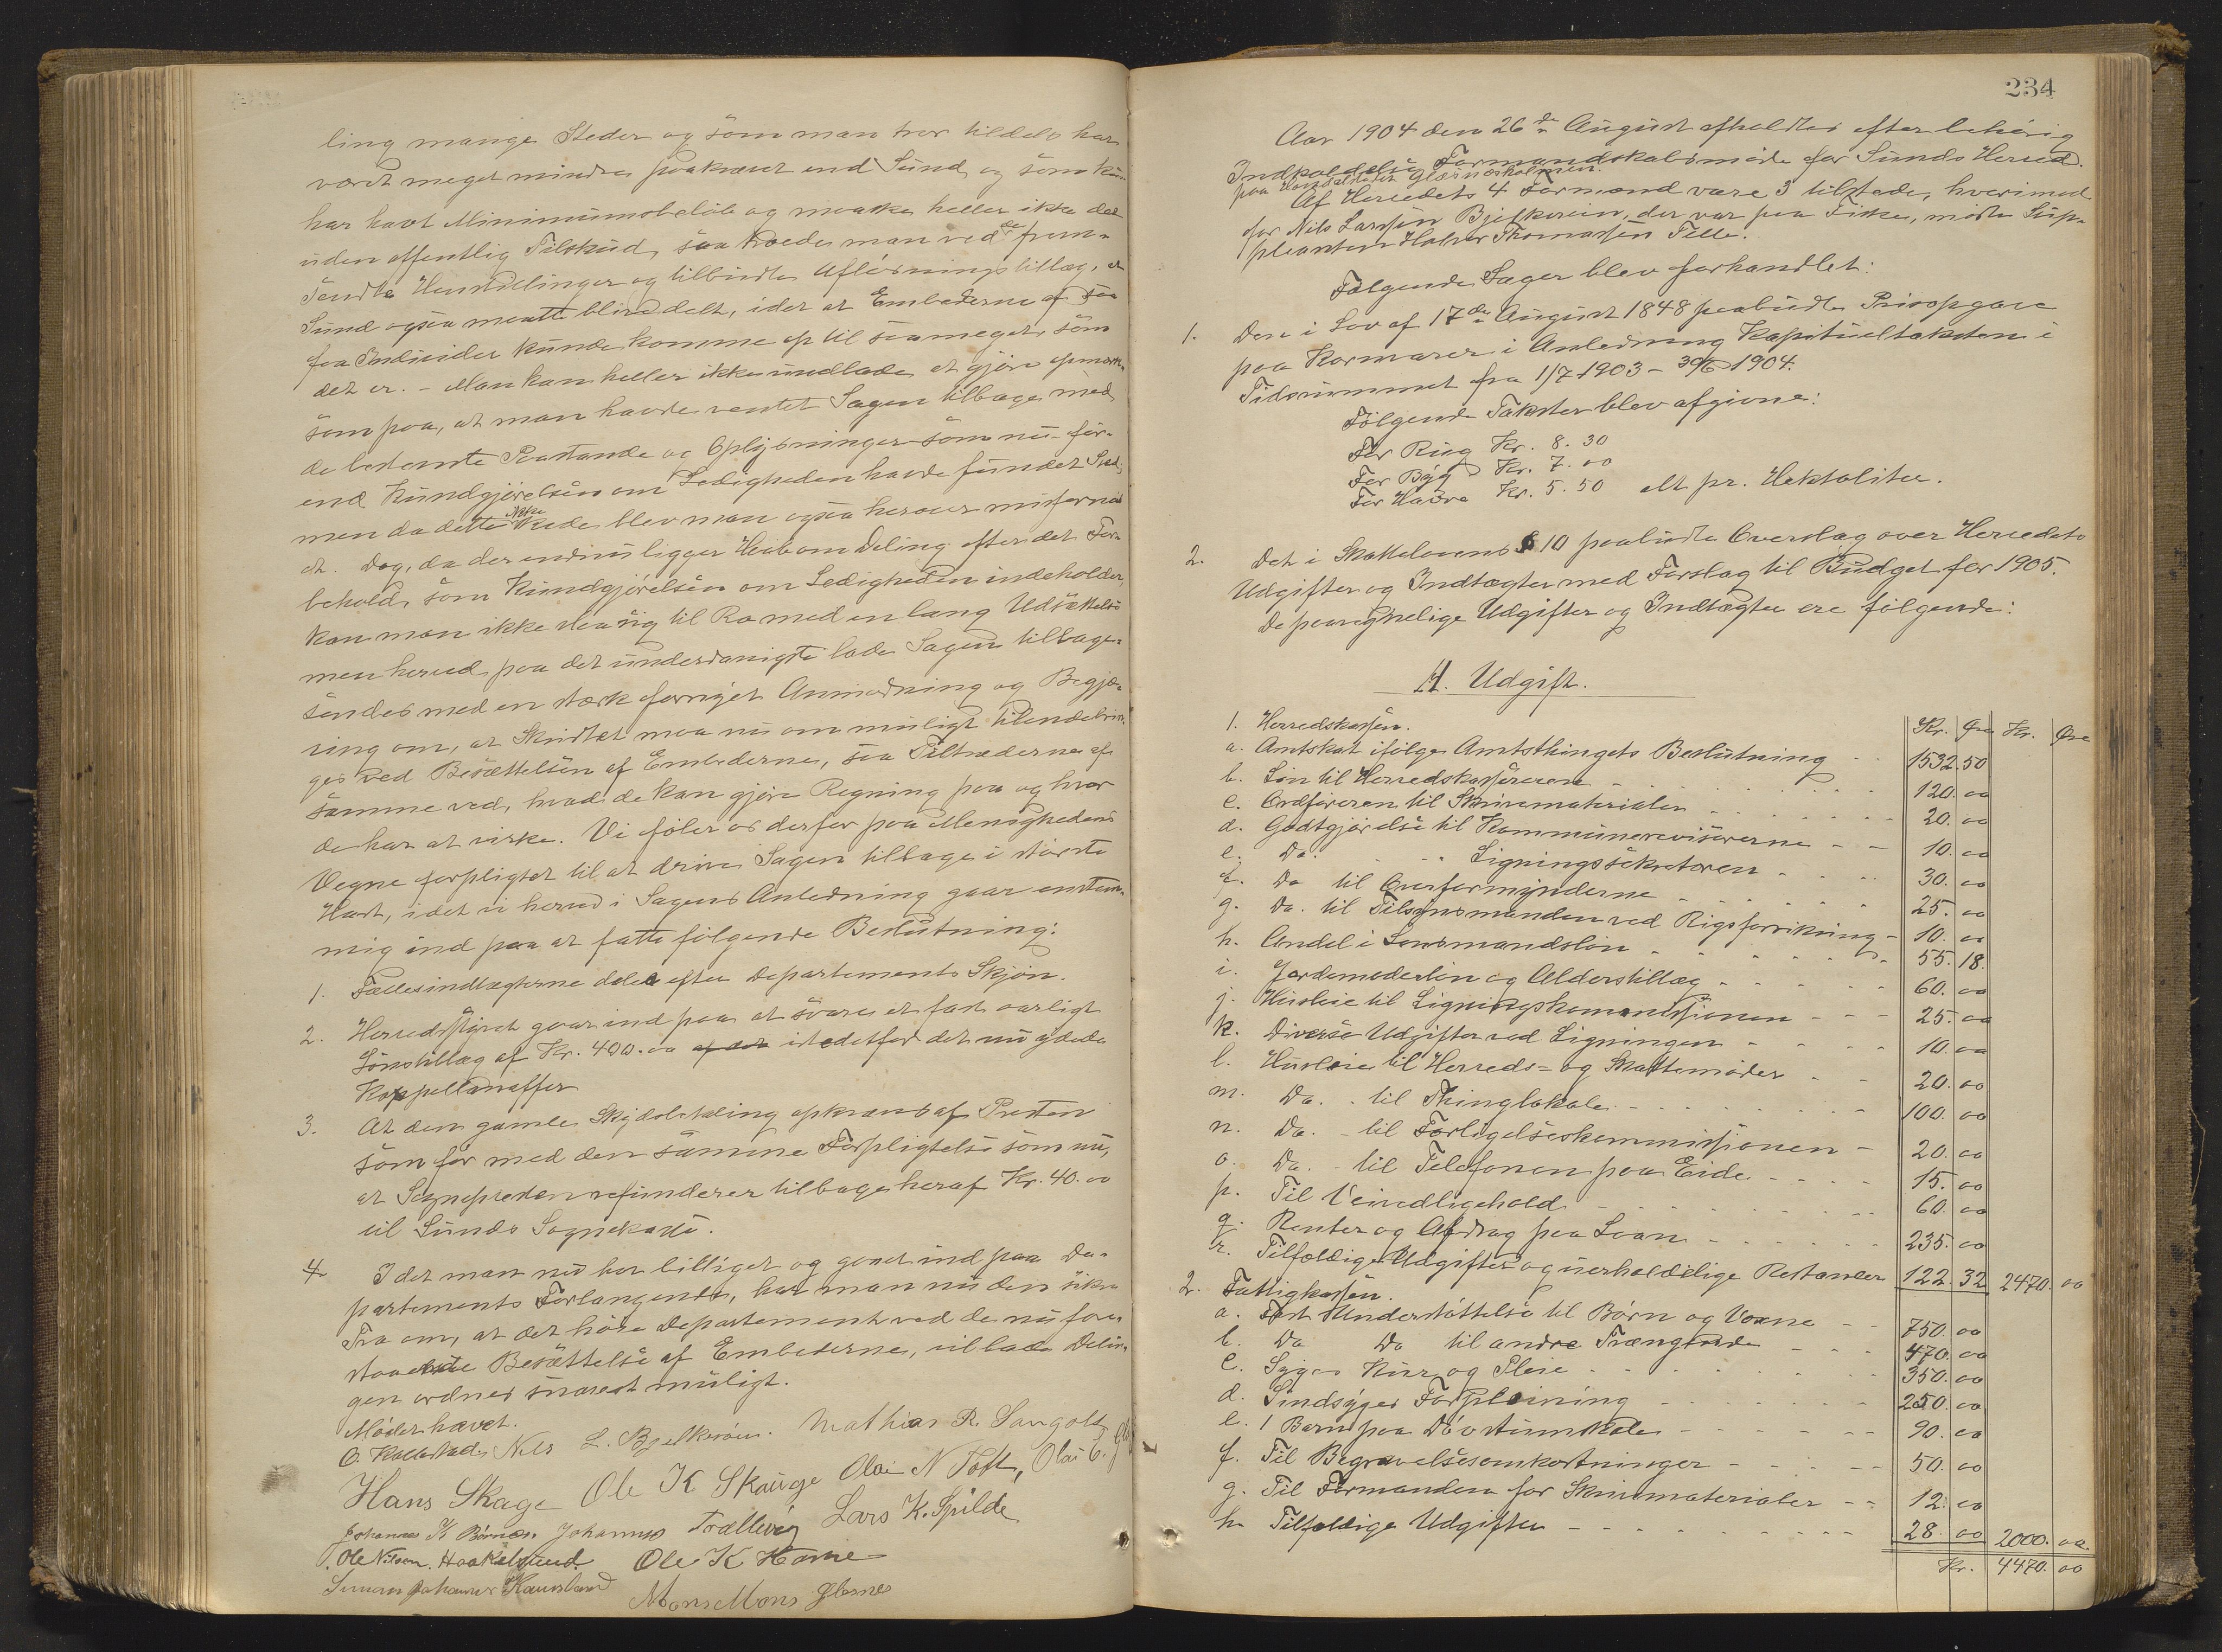 ling mange Steder og som man tror tildels har
været meget mindre paakrævet end Sund, og som kun
har havt Minimumsbeløb og maaske heller ikke det
uden offentlig Tilskud, saa troede man ved de frem-
sendte Henstillinger og tilbudte Afløsningstillæg, at
Sund ogsaa maatte blive delt, idet at Embederne af saa
faa Individer kunde komme op til saameget, som
det er. - Man kan heller ikke undlade at gjøre opmærk-
som paa, at man havde ventet Sagen tilbage med
de bestemte Paastande og Oplysninger som nu - før-
end Kundgjørelsen om Ledigheden havde fundet Sted,
men da dette ikke skede blev man ogsaa herover misfornøi
et. Dog, da der endnu ligger Haab om Deling efter det For-
behold, som Kundgjørelsen om Ledigheden indeholder,
kan man ikke slaa sig til Ro med en lang Udsættelse
men herved paa det underdanigste lade Sagen tilbage-
sendes med en stærk fornyet Anmodning og Begjæ-
ring om, at Skridtet maa nu om muligt tilendebrin-
ges ved Besættelsen af Embederne, saa Tiltræderne af
samme ved, hvad de kan gjøre Regning paa og hvor
de har at virke. Vi føler os derfor paa Menighedens
Vegne forpligtet til at drive Sagen tilbage i største
Hast, idet vi herved i Sagens Anledning gaar enstem-
mig ind paa at fatte følgende Beslutning:
1. Fællesindtægterne deles efter Departements Skjøn.
2. Herredsstyret gaar ind paa at svare et fast aarligt
Lønstillæg af Kr. 400.00 istedetfor det nu ydede
Kappellanoffer
3. At den gamle Skydsbetaling opkræves af Presten
som før med den samme Forpligtelse som nu,
at Sognepresten refunderer tilbage heraf Kr. 40.00
til Sunds Sognekasse.
4 Idet man nu har billiget og gaaet ind paa De-
partements Forlangende, har man nu den sikre
Tro om, at det høie Departement ved de nu fore-
staaende Besættelse af Embederne, vil lade Delin-
gen ordnes snarest muligt.
Mødet hævet.
O. Kallestad. Nils L. Bjelkerøin. Mathias R. Sangolt
Hans Skage Ole K Skauge Olai N Toft, Olai E.
Johannes K Børnes. Johannes Trællevig Lars K. Spilde
Ole Nilsen Haakelsund. Ole K Horne
Simon Johannes Kausland Mons Mons Glesnes
234
Aar 1904 den 26de August afholdtes efter lovlig
Indkaldelse Formandskabsmøde for Sunds Herred.
paa Handelsstedet Glæsnæsholmen.
Af Herredets 4 Formænd vare 3 tilstede, hverimod
for Nils Larssen Bjelkerøin, der var paa Fiske, mødte Sup-
pleanten Halvor Thomassen Telle.
Følgende Sager blev forhandlet:
1. Den i Lov af 17de August 1848 paabudte Prisopgave
paa Kornvarer i Anledning Kapitueltaksten i
Tidsrummet fra 1/7 1903 - 30/6 1904.
Følgende Takster blev afgivne:
For Rug Kr. 8.30
For Byg Kr. 7.00
For Havre Kr. 5.50 alt pr. Hektoliter.
2. Det i Skattelovens § 10 paabudte Overslag over Herredets
Udgifter og Indtægter med Forslag til Budget for 1905.
De paaregnelige Udgifter og Indtægter ere følgende:
A. Udgift.
1. Herredskassen. Kr. Øre Kr. Øre
a. Amtskat ifølge Amtsthingets Beslutning - - 1532.50
b. Løn til Herredskassereren - - - 120.00
c. Ordføreren til Skrivematerialer - - - 20.00
d. Godtgjørelse til Kommunerevisorerne - - 10.00
e. Do. - - Ligningssekretæren - - - 30.00
f. Do til Overformynderne - - - 25.00
g. Do. til Tilsynsmanden ved Rigsforsikring - 10.00
h. Andel i Lensmandsløn - - - 55.18.
i. Jordemoderløn og Alderstillæg - - - 60.00
j. Husleie til Ligningskommissionen - - - 25.00
k. Diverse Udgifter ved Ligningen - - - 10.00
l. Husleie til Herreds- og Skattemøder - - 20.00
m. Do. - til Thinglokale - - - 100.00
n. Do. - til Forligelseskommissionen - 20.00
o. Do. - til Telefonen paa Eide - - - 15.00
p. Til Veivedligehold - - - 60.00
q. Renter og Afdrag paa Laan - - - 235.00
r. Tilfældige Udgifter og uerholdelige Restancer 122.32 2470.00
2. Fattigkassen.
a. Fast Understøttelse til Børn og Voxne - - 750.00
b. Do Do til andre Trængende - - - 470.00
c. Syges Kur og Pleie - - - 350.00
d. Sindsyges Forpleining - - - 250.00
e. 1 Barn paa Døvstumskole - - - 90.00
f. Til Begravelsesomkostninger - - - 50.00
g. Til Formanden for Skrivematerialer - - 12.00
h. Tilfældige Udgifter - - - 28.00 2000.00.
Kr. 4470.00